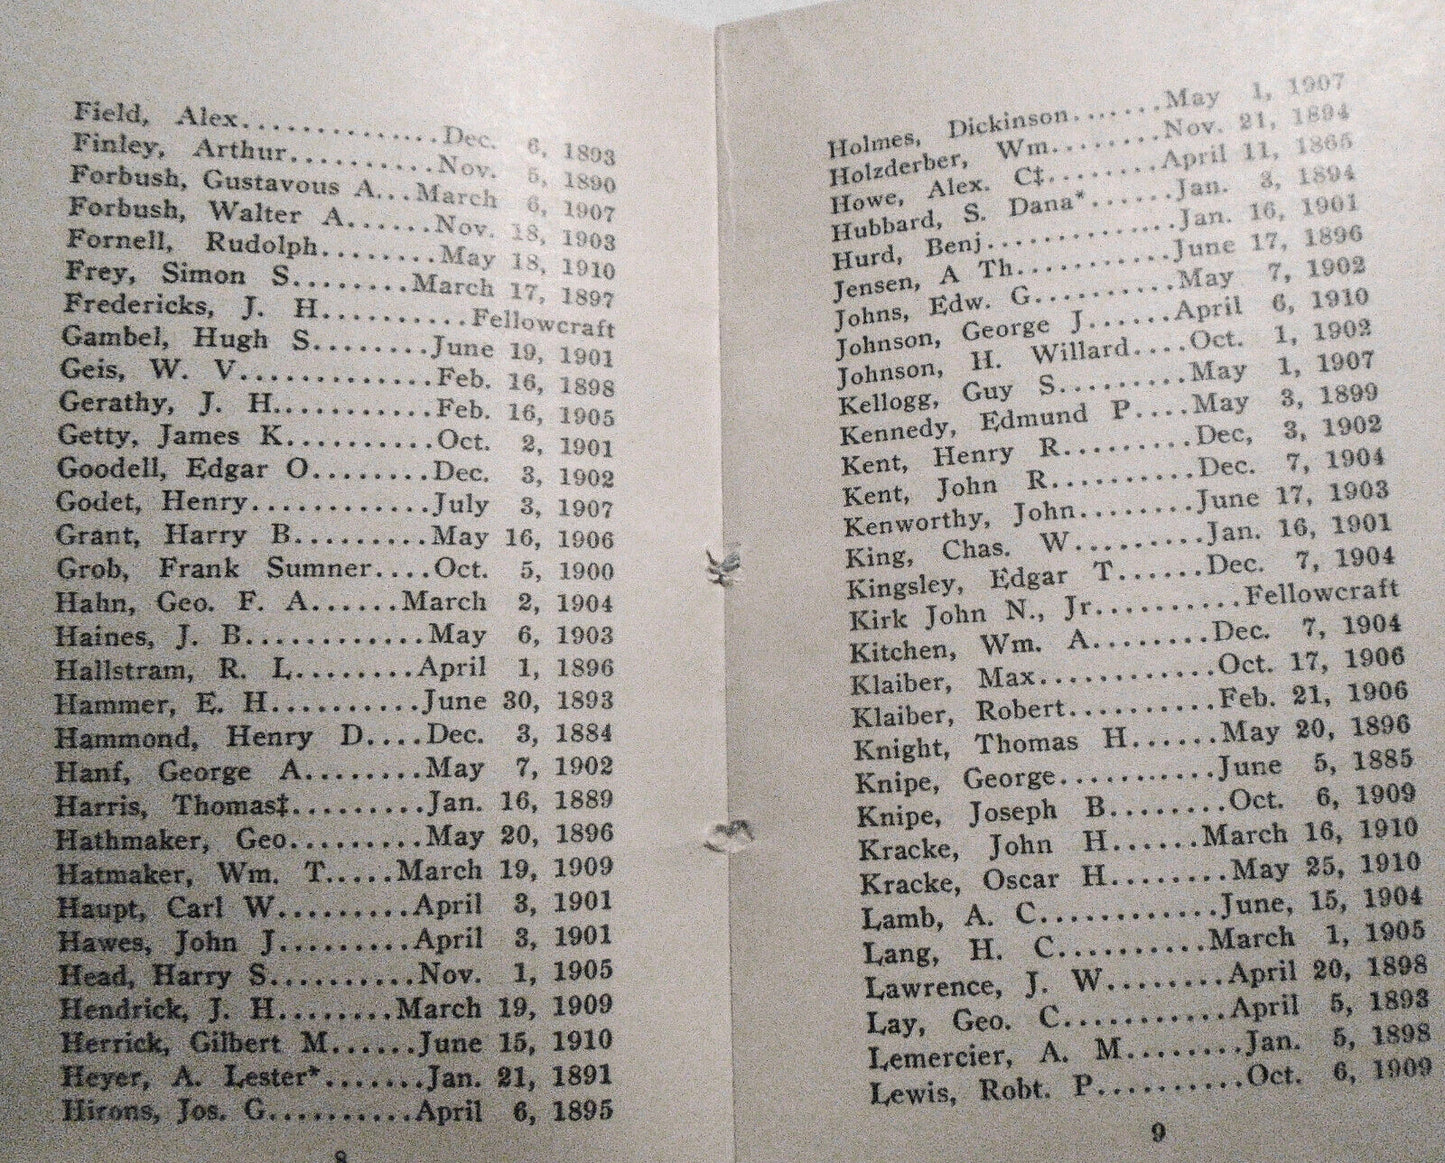 Field, Alex..............Dec. 6, 1893
Finley, Arthur...........Nov. 5, 1890
Forbush, Gustavous A...March 6, 1907
Forbush, Walter A.......Nov. 18, 1903
Fornell, Rudolph.........May 18, 1910
Frey, Simon S........March 17, 1897
Fredericks, J. H..........Fellowcraft
Gambel, Hugh S........June 19, 1901
Geis, W. V..............Feb. 16, 1898
Gerathy, J. H...........Feb. 16, 1905
Getty, James K...........Oct. 2, 1901
Goodell, Edgar O.........Dec. 3, 1902
Godet, Henry.............July 3, 1907
Grant, Harry B.........May 16, 1906
Grob, Frank Sumner....Oct. 5, 1900
Hahn, Geo. F. A......March 2, 1904
Haines, J. B............May 6, 1903
Hallstram, R. L.........April 1, 1896
Hammer, E. H..........June 30, 1893
Hammond, Henry D....Dec. 3, 1884
Hanf, George A........May 7, 1902
Harris, Thomas‡.........Jan. 16, 1889
Hathmaker, Geo.........May 20, 1896
Hatmaker, Wm. T.....March 19, 1909
Haupt, Carl W.........April 3, 1901
Hawes, John J.........April 3, 1901
Head, Harry S..........Nov. 1, 1905
Hendrick, J. H........March 19, 1909
Herrick, Gilbert M......June 15, 1910
Heyer, A. Lester*.......Jan. 21, 1891
Hirons, Jos. G..........April 6, 1895
8
Holmes, Dickinson.......May 1, 1907
Holzderber, Wm........Nov. 21, 1894
Howe, Alex. C‡........April 11, 1865
Hubbard, S. Dana*......Jan. 3, 1894
Hurd, Benj..............Jan. 16, 1901
Jensen, A Th...........June 17, 1896
Johns, Edw. G..........May 7, 1902
Johnson, George J......April 6, 1910
Johnson, H. Willard....Oct. 1, 1902
Kellogg, Guy S.........May 1, 1907
Kennedy, Edmund P....May 3, 1899
Kent, Henry R.........Dec, 3, 1902
Kent, John R..........Dec. 7, 1904
Kenworthy, John........June 17, 1903
King, Chas. W.........Jan. 16, 1901
Kingsley, Edgar T......Dec. 7, 1904
Kirk John N., Jr..........Fellowcraft
Kitchen, Wm. A........Dec. 7, 1904
Klaiber, Max............Oct. 17, 1906
Klaiber, Robert..........Feb. 21, 1906
Knight, Thomas H......May 20, 1896
Knipe, George...........June 5, 1885
Knipe, Joseph B........Oct. 6, 1909
Kracke, John H......March 16, 1910
Kracke, Oscar H........May 25, 1910
Lamb, A. C............June, 15, 1904
Lang, H. C..........March 1, 1905
Lawrence, J. W........April 20, 1898
Lay, Geo. C...........April 5, 1893
Lemercier, A. M........Jan. 5, 1898
Lewis, Robt. P..........Oct. 6, 1909
9